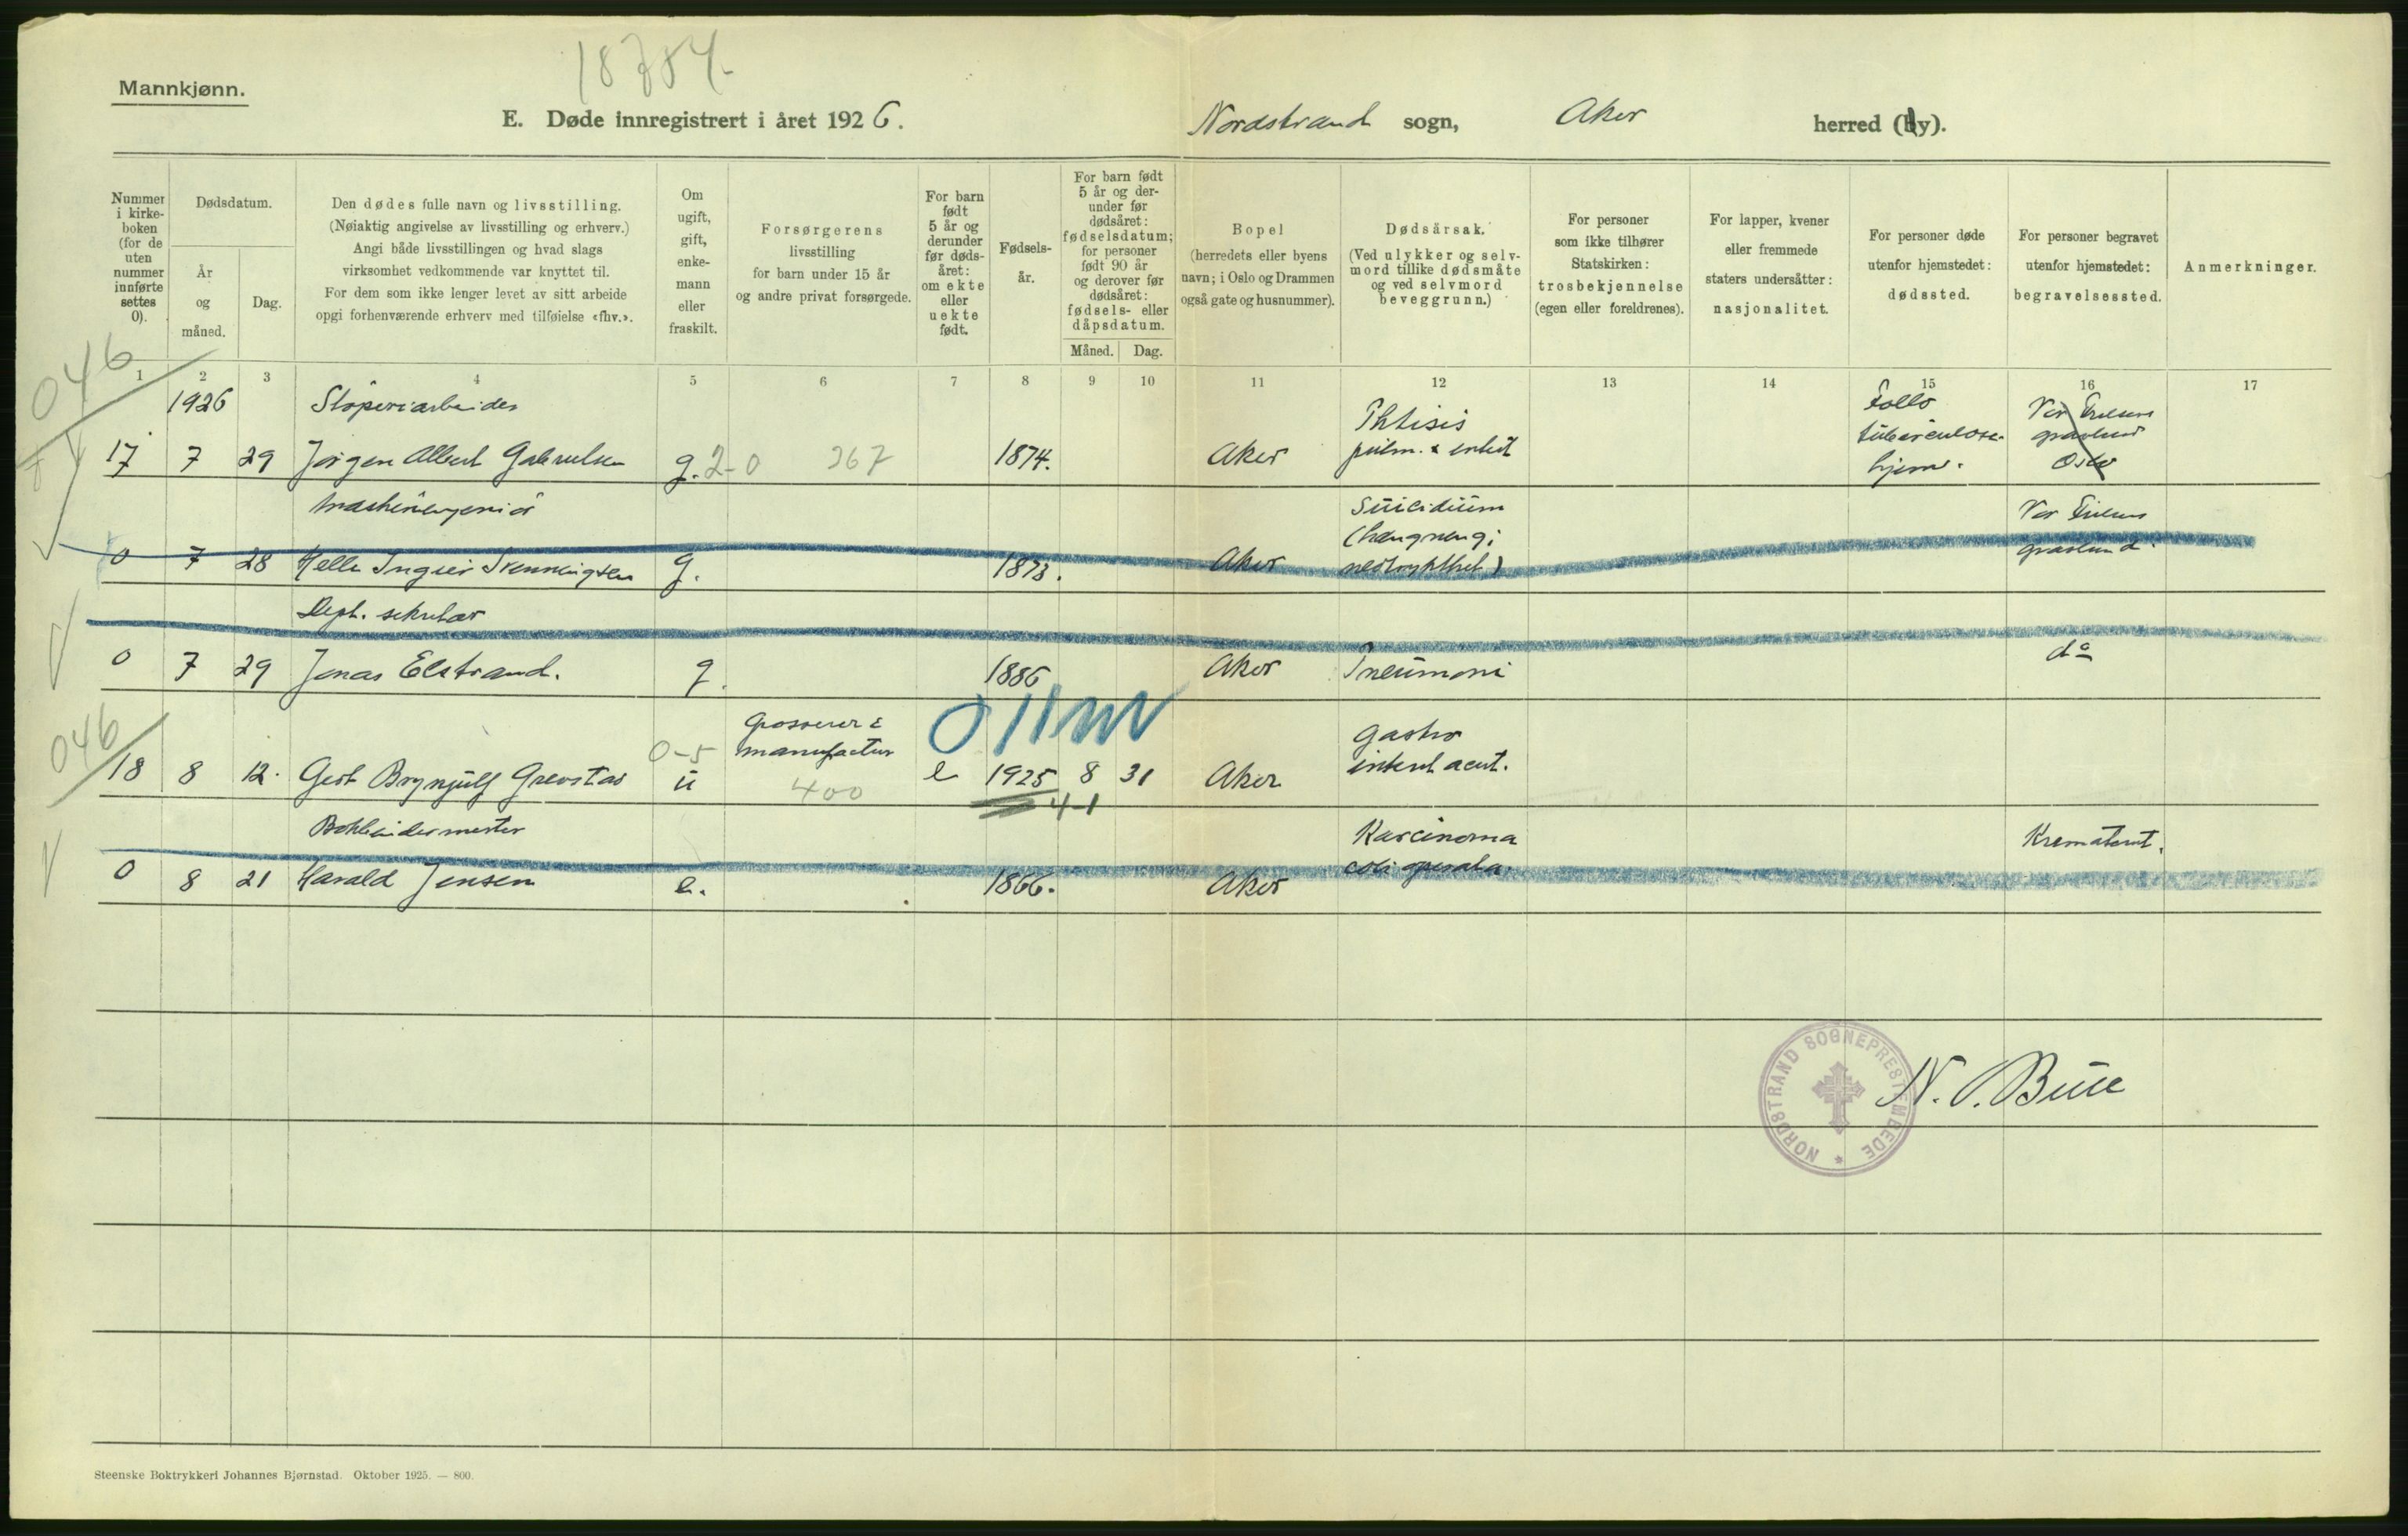 18784-
Mannkjønn.
E. Døde innregistrert i året 1926.
Nordstrand sogn, Aker herred (by).
Nummer i kirkeboken (for de uten nummer innførte settes 0).
Dødsdatum.
År og måned.
Dag.
Den dødes fulle navn og livsstilling.
(Nøiaktig angivelse av livsstilling og erhverv.)
Angi både livsstillingen og hvad slags
virksomhet vedkommende var knyttet til.
For dem som ikke lenger levet av sitt arbeide
opgi forhenværende erhverv med tilføielse «fhv.».
Om ugift, gift, enkemann eller fraskilt.
Forsørgerens
livsstilling
for barn under 15 år
og andre privat forsørgede.
For barn født 5 år og derunder før dødsåret: om ekte eller uekte født.
Fødselsår.
For barn født 5 år og derunder før dødsåret: fødselsdatum; for personer født 90 år og derover før dødsåret: fødsels- eller dåpsdatum.
Måned. Dag.
Bopel
(herredets eller byens
navn; i Oslo og Drammen
også gate og husnummer).
Dødsårsak.
(Ved ulykker og selvmord tillike dødsmåte
og ved selvmord
beveggrunn.)
For personer
som ikke tilhører
Statskirken:
trosbekjennelse
(egen eller foreldrenes).
For lapper, kvener
eller fremmede
staters undersåtter:
nasjonalitet.
For personer døde
utenfor hjemstedet:
dødssted.
For personer begravet
utenfor hjemstedet:
begravelsessted.
Anmerkninger.
1 2 3 4 5 6 7 8 9 10 11 12 13 14 15 16 17
046
1926 Støperiarbeider Phtisis Follo Vor Frelsers
17 7 29 Jørgen Albert Gabrielsen g. 2-0 267 1874. Aker pulm. & entest tuberculose- gravlund
hjem. Oslo
Maskiningeniør Suicidium Vor Frelsers
(hængning i
0 7 28 Helle Ingier Svenningsen g. 1873. Aker nedtrykthet) gravlund
Dept. sekretær
0 7 29 Jonas Elstrand. g. 1886 Aker Pneumoni do
046
Grosserer & Gastro
0-5 manufactur
18 8 12. Gert Brynjulf Grevstad u 400 e 1925 8 31 Aker intest acut.
4-1
Bokbindermester Karcinoma Krematoriet.
0 8 21 Harald Jensen e. 1866. Aker coli operata.
NORDSTRAND SOGNEPRESTEMBEDE
N. O. Bue
Steenske Boktrykkeri Johannes Bjørnstad. Oktober 1925. — 800.